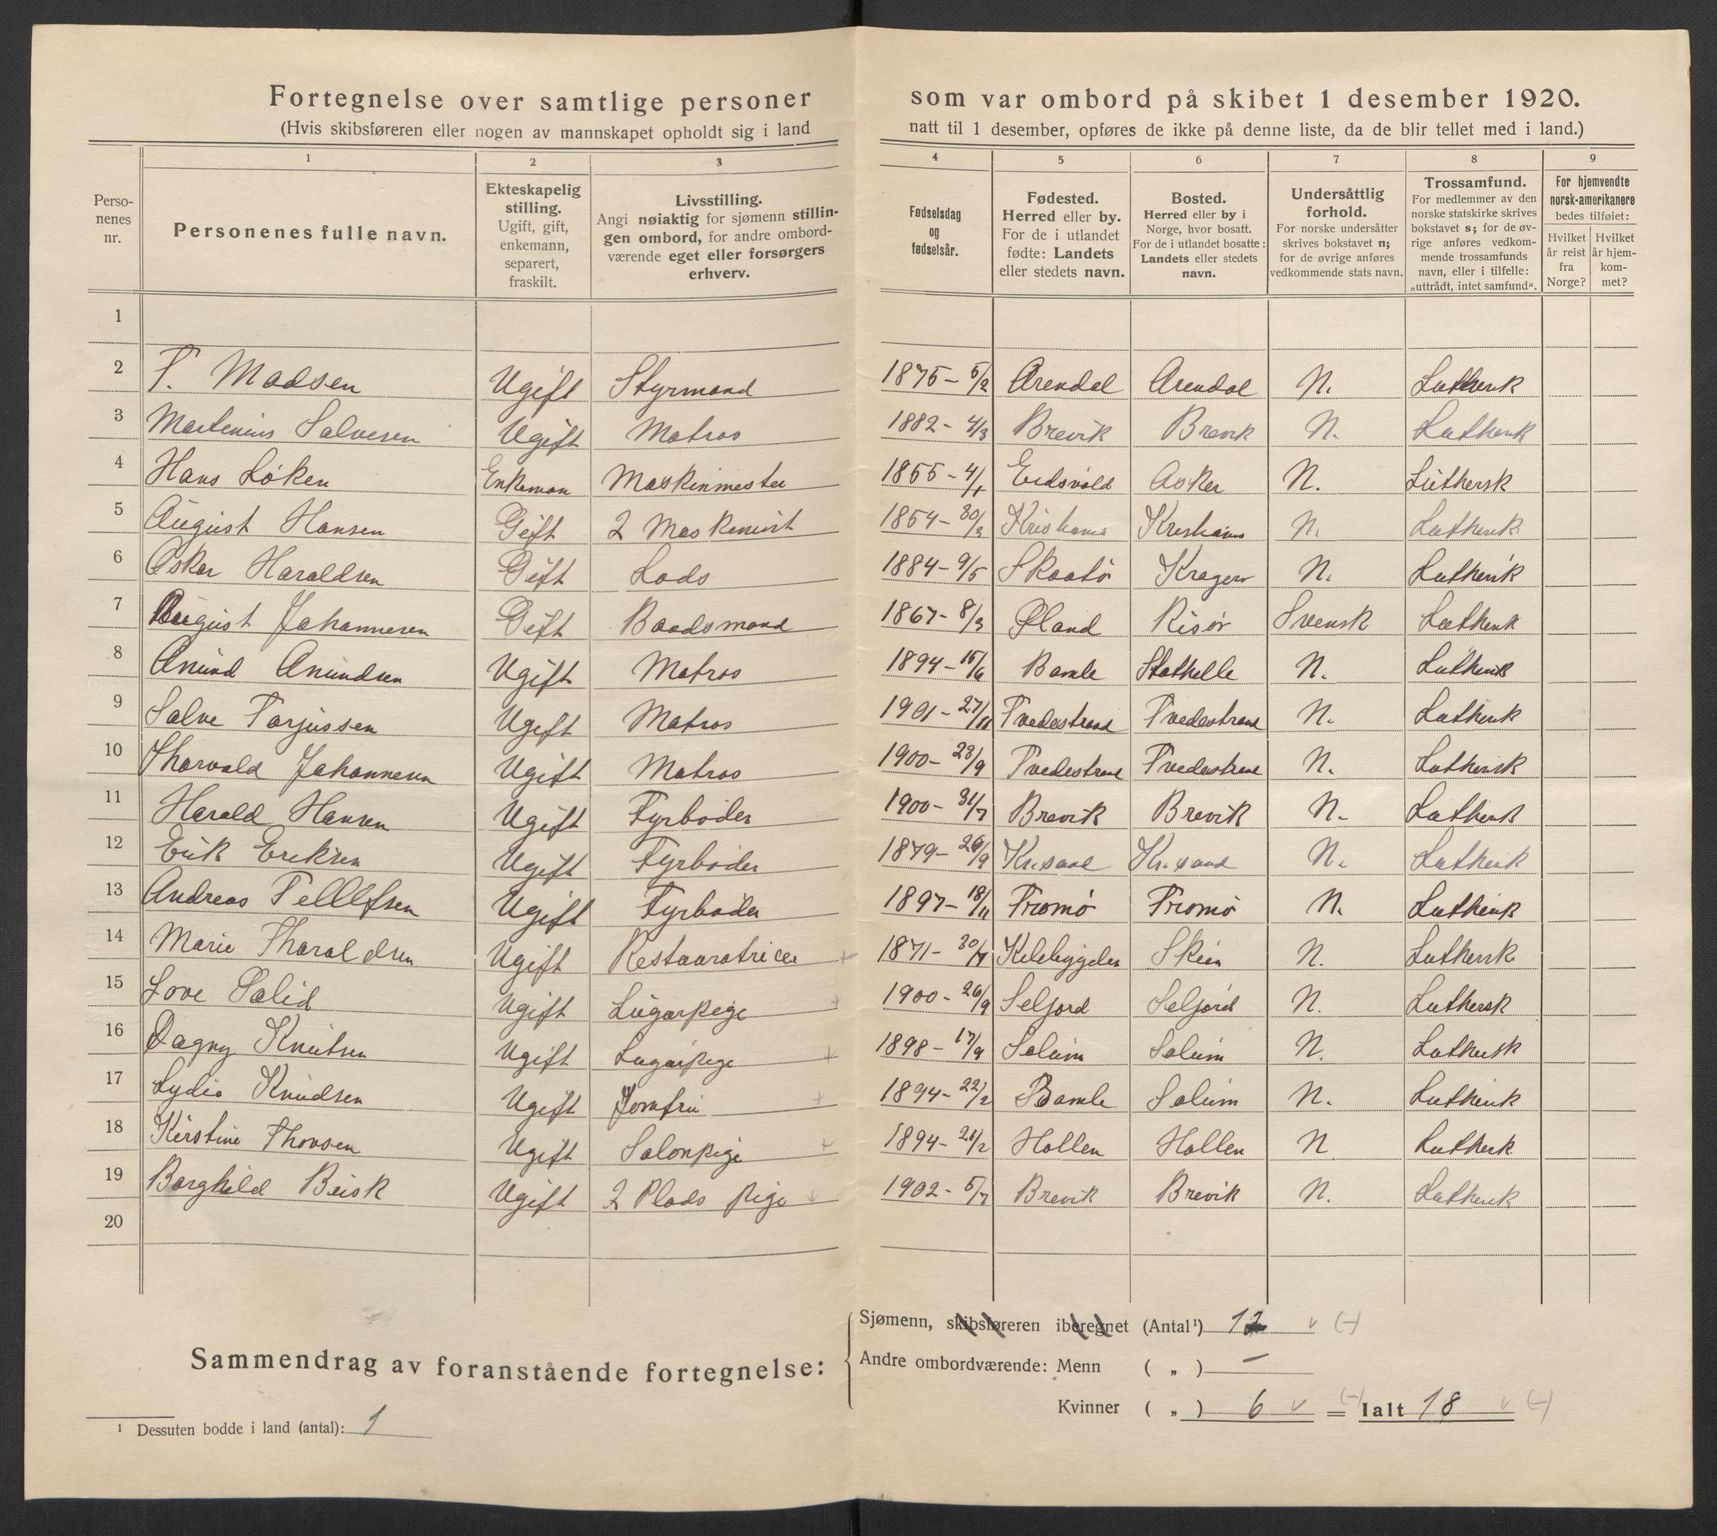 Fortegnelse over samtlige personer som var ombord på skibet 1 desember 1920.
(Hvis skibsføreren eller nogen av mannskapet opholdt sig i land natt til 1 desember, opføres de ikke på denne liste, da de blir tellet med i land.)
Personenes nr.
1
Personenes fulle navn.
2
Ekteskapelig stilling.
Ugift, gift, enkemann, separert, fraskilt.
3
Livsstilling.
Angi nøiaktig for sjømenn stillingen ombord, for andre ombordværende eget eller forsørgers erhverv.
4
Fødselsdag og fødselsår.
5
Fødested.
Herred eller by.
For de i utlandet fødte: Landets eller stedets navn.
6
Bosted.
Herred eller by i Norge, hvor bosatt.
For de i utlandet bosatte: Landets eller stedets navn.
7
Undersåttlig forhold.
For norske undersåtter skrives bokstavet n; for de øvrige anføres vedkommende stats navn.
8
Trossamfund.
For medlemmer av den norske statskirke skrives bokstavet s; for de øvrige anføres vedkommende trossamfunds navn, eller i tilfelle: „uttrådt, intet samfund“.
9
For hjemvendte norsk-amerikanere bedes tilføiet:
Hvilket år reist fra Norge?
Hvilket år hjemkommet?
1
2 T. Madsen Ugift Styrmand 1875-5/2 Arendal Arendal N. Luthersk
3 Martenius Salvesen Ugift Matros 1882-4/3 Brevik Brevik N. Luthersk
4 Hans Løken Enkeman Maskinmester 1855-4/1 Eidsvold Asker N. Luthersk
5 August Hansen Gift 2 Maskenist 1854-30/3 Kristiania Kristiania N. Luthersk
6 Oskar Haraldsen Gift Lods 1884-9/5 Skaatø Kragerø N. Luthersk
7 August Johannesen Gift Baadsmand 1867-8/3 Øland Risør Svensk Luthersk
8 Anund Anundsen Ugift Matros 1894-15/6 Bamle Stathelle N. Luthersk
9 Salve Torjussen Ugift Matros 1901-27/11 Tvedestrand Tvedestrand N. Luthersk
10 Thorvald Johannesen Ugift Matros 1900-23/9 Tvedestrand Tvedestrand N. Luthersk
11 Harald Hansen Ugift Fyrbøder 1900-31/7 Brevik Brevik N. Luthersk
12 Erik Eriksen Ugift Fyrbøder 1879-26/9 Kr.sand Kr.sand N. Luthersk
13 Andreas Tellefsen Ugift Fyrbøder 1897-18/11 Tromø Tromø N. Luthersk
14 Marie Tharaldsen Ugift Restauratrice + 1871-30/7 Kilebygden Skien N. Luthersk
15 Love Solid Ugift Lugarpige + 1900-26/9 Seljord Seljord N. Luthersk
16 Dagny Knutsen Ugift Lugarpige + 1898-17/9 Solum Solum N. Luthersk
17 Lydia Knudsen Ugift Jomfru + 1894-22/2 Bamle Solum N. Luthersk
18 Kirstine Thovsen Ugift Salonpige + 1894-21/2 Hollen Hollen N Luthersk
19 Borghild Beisk Ugift 2 Plads pige + 1902-5/7 Brevik Brevik N. Luthersk
20
Sammendrag av foranstående fortegnelse:
Sjømenn, skibsføreren iberegnet (Antal¹) 12 v (-)
Andre ombordværende: Menn ( „ ) —
Kvinner ( „ ) 6 v = (-) Ialt 18 v (-)
¹ Dessuten bodde i land (antal): 1